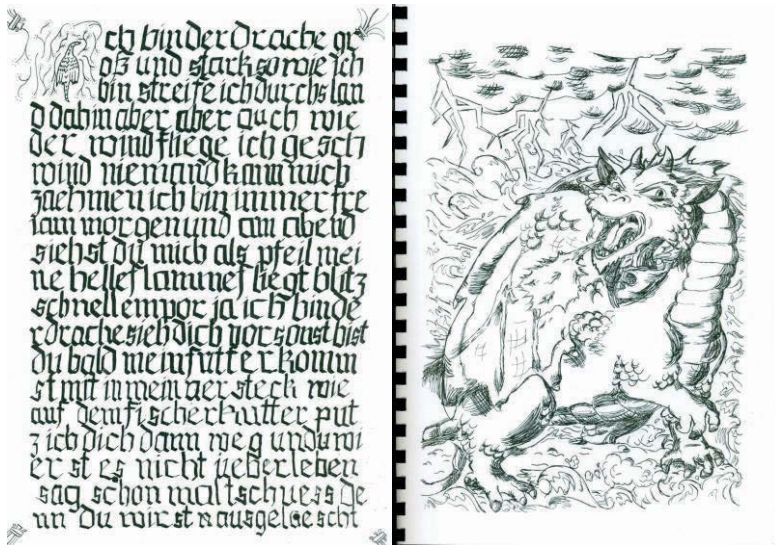 Ich bin der Drache gr
oß und stark so wie ich
bin streife ich durchs lan
d dahin aber aber auch wie
der wind fliege ich gesch
wind niemand kann mich
zaehmen ich bin immer fre
i am morgen und am abend
siehst du mich als pfeil mei
ne helle flamme fliegt blitz
schnell empor ja ich bin de
r drache sieh dich vor sonst bist
du bald mein futter komm
st mit in mein versteck wie
auf dem fischerkutter put
z ich dich dann weg und du wi
rst es nicht ueberleben
sag schon mal tschuess de
nn du wirst ausgeloescht